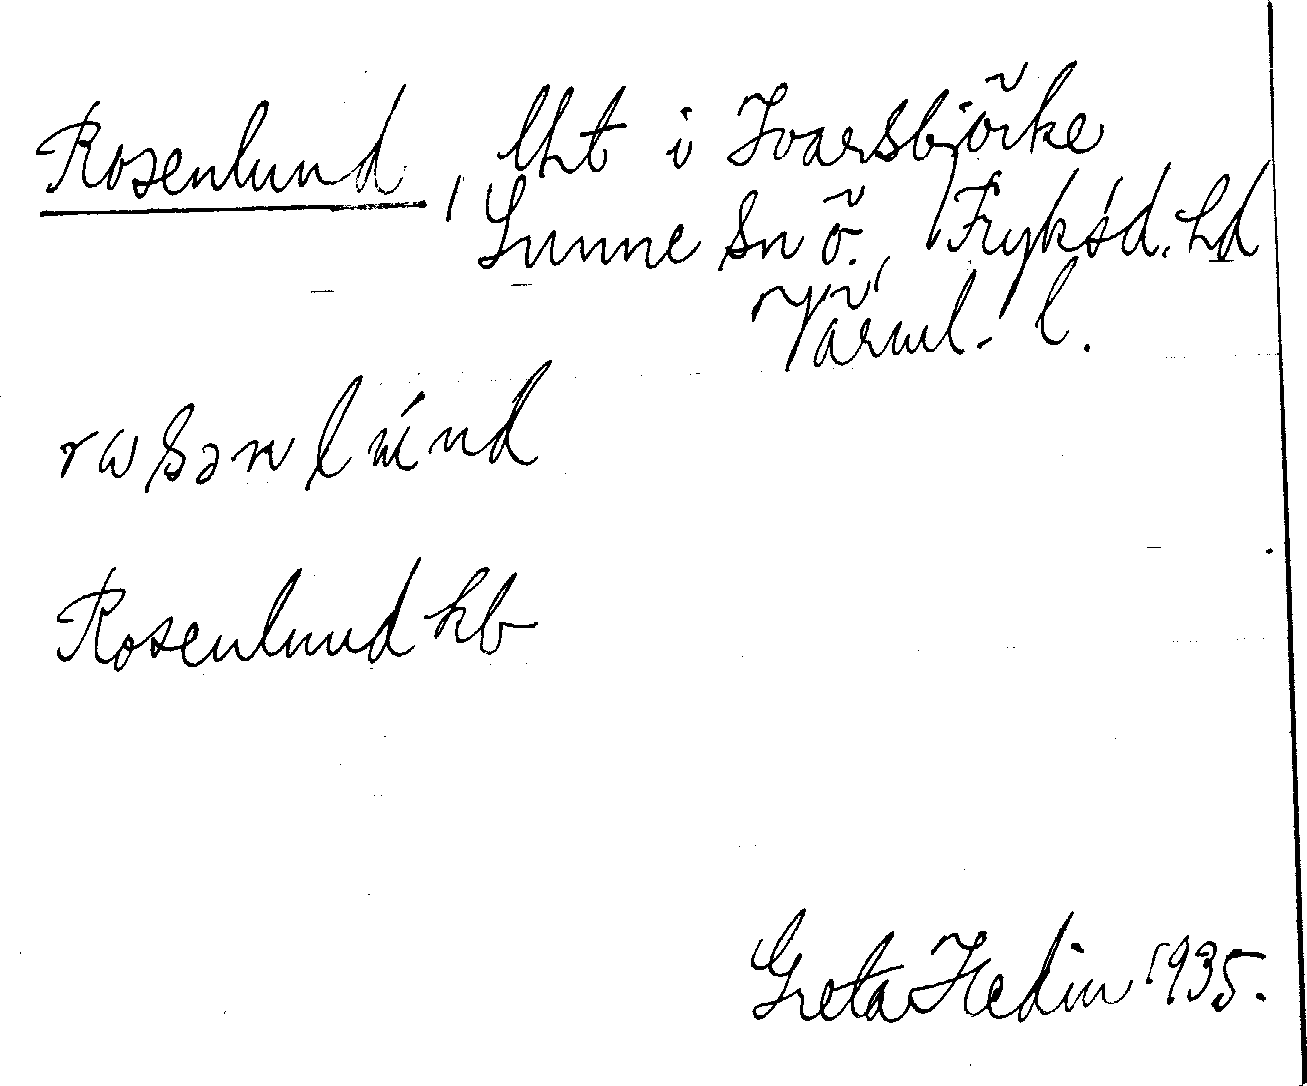 Rosenlund, lht i Ivarsbjörke
Sunne sn ö., Fryksd. hd
Värml. l.
rɷsənlúnd
Rosenlund kb
Greta Hedin 1935.